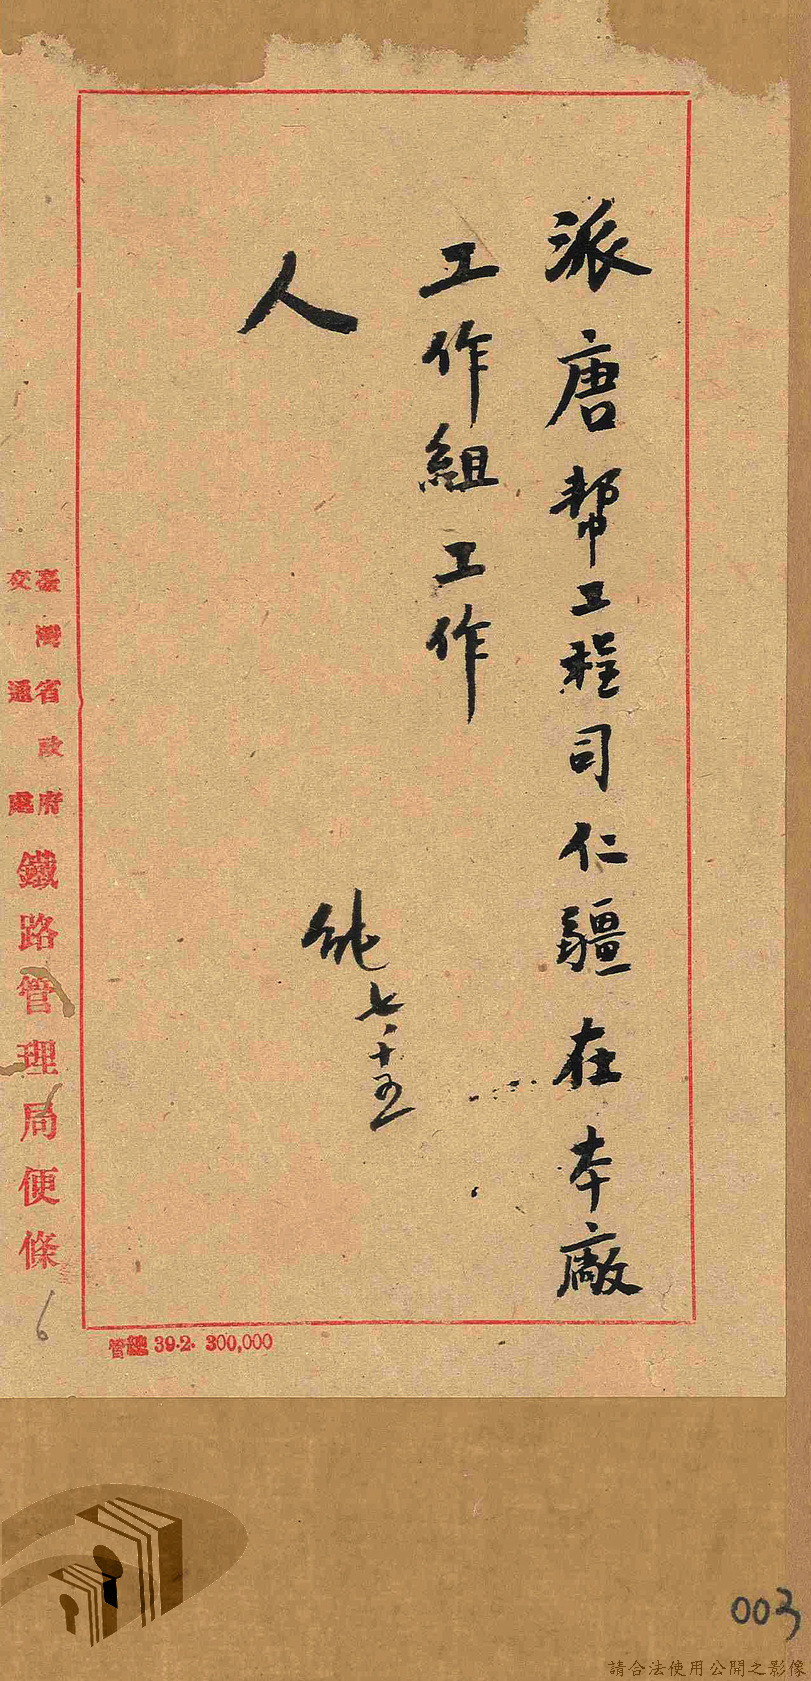 派唐幫工程司仁疆在本廠
工作組工作
人
純七、十五
臺灣省政府
交通處
鐵路管理局便條
6
管總 39.2. 300,000
003
請合法使用公開之影像